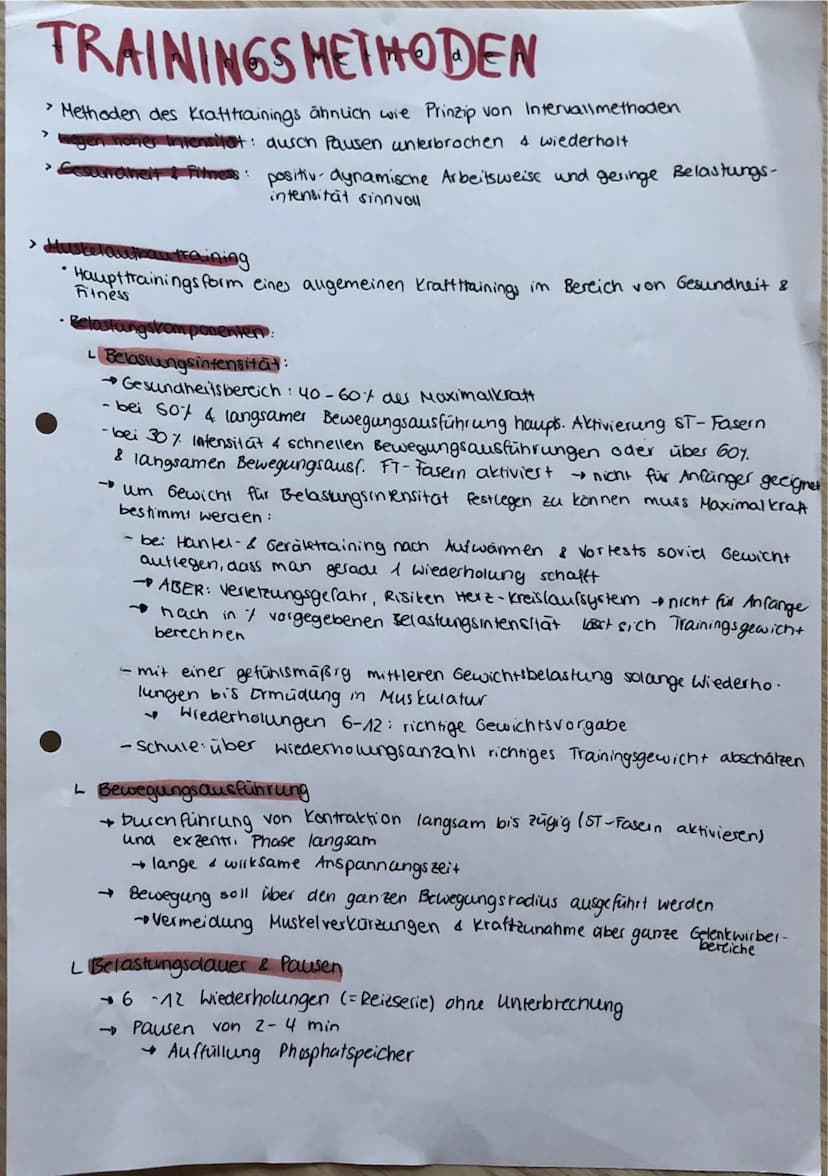 TRAININGSMETHODEN
> Methoden des Krafttrainings ähnlich wie Prinzip von Intervallmethoden
> Wegen hoher Intensität: durch Pausen unterbrochen & wiederholt
> Gesundheit & Fitness: positiv-dynamische Arbeitsweise und geringe Belastungs-
intensität sinnvoll
> Muskelaufbautraining
• Haupttrainingsform eines allgemeinen Krafttrainings im Bereich von Gesundheit &
Fitness
• Belastungskomponenten:
L Belastungsintensität:
→ Gesundheitsbereich: 40-60% des Maximalkraft
- bei 50% & langsamer Bewegungsausführung haupts. Aktivierung ST-Fasern
- bei 30% Intensität & schnellen Bewegungsausführungen oder über 60%
& langsamen Bewegungsausf. FT-Fasern aktiviert → nicht für Anfänger geeignet
→ um Gewicht für Belastungsintensität festlegen zu können muss Maximalkraft
bestimmt werden:
- bei Hantel- & Gerätetraining nach Aufwärmen & Vortests soviel Gewicht
auflegen, dass man gerade 1 Wiederholung schafft
→ ABER: Verletzungsgefahr, Risiken Herz-Kreislaufsystem → nicht für Anfänge
→ nach in % vorgegebenen Belastungsintensität lässt sich Trainingsgewicht
berechnen
- mit einer gefühlsmäßig mittleren Gewichtsbelastung solange Wiederho-
lungen bis Ermüdung in Muskulatur
→ Wiederholungen 6-12: richtige Gewichtsvorgabe
- Schule: über Wiederholungsanzahl richtiges Trainingsgewicht abschätzen
L Bewegungsausführung
→ Durchführung von Kontraktion langsam bis zügig (ST-Fasern aktivieren)
und exzentr. Phase langsam
→ lange & wirksame Anspannungszeit
→ Bewegung soll über den ganzen Bewegungsradius ausgeführt werden
→ Vermeidung Muskelverkürzungen & Kraftzunahme über ganze Gelenkwirbel-
bereiche
L Belastungsdauer & Pausen
→ 6-12 Wiederholungen (=Reizserie) ohne Unterbrechung
→ Pausen von 2-4 min
→ Auffüllung Phosphatspeicher